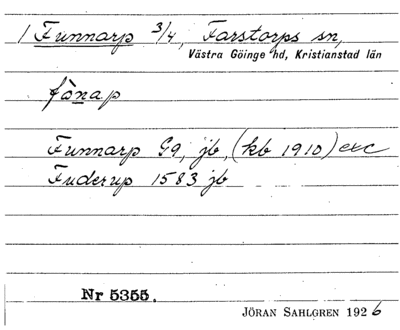 1 Funnarp 3/4, Farstorps sn,
Västra Göinge hd, Kristianstad län
fònap
Funnarp G9, jb, (kb 1910) etc
Fuderup 1583 jb
Nr 5355.
JÖRAN SAHLGREN 1926